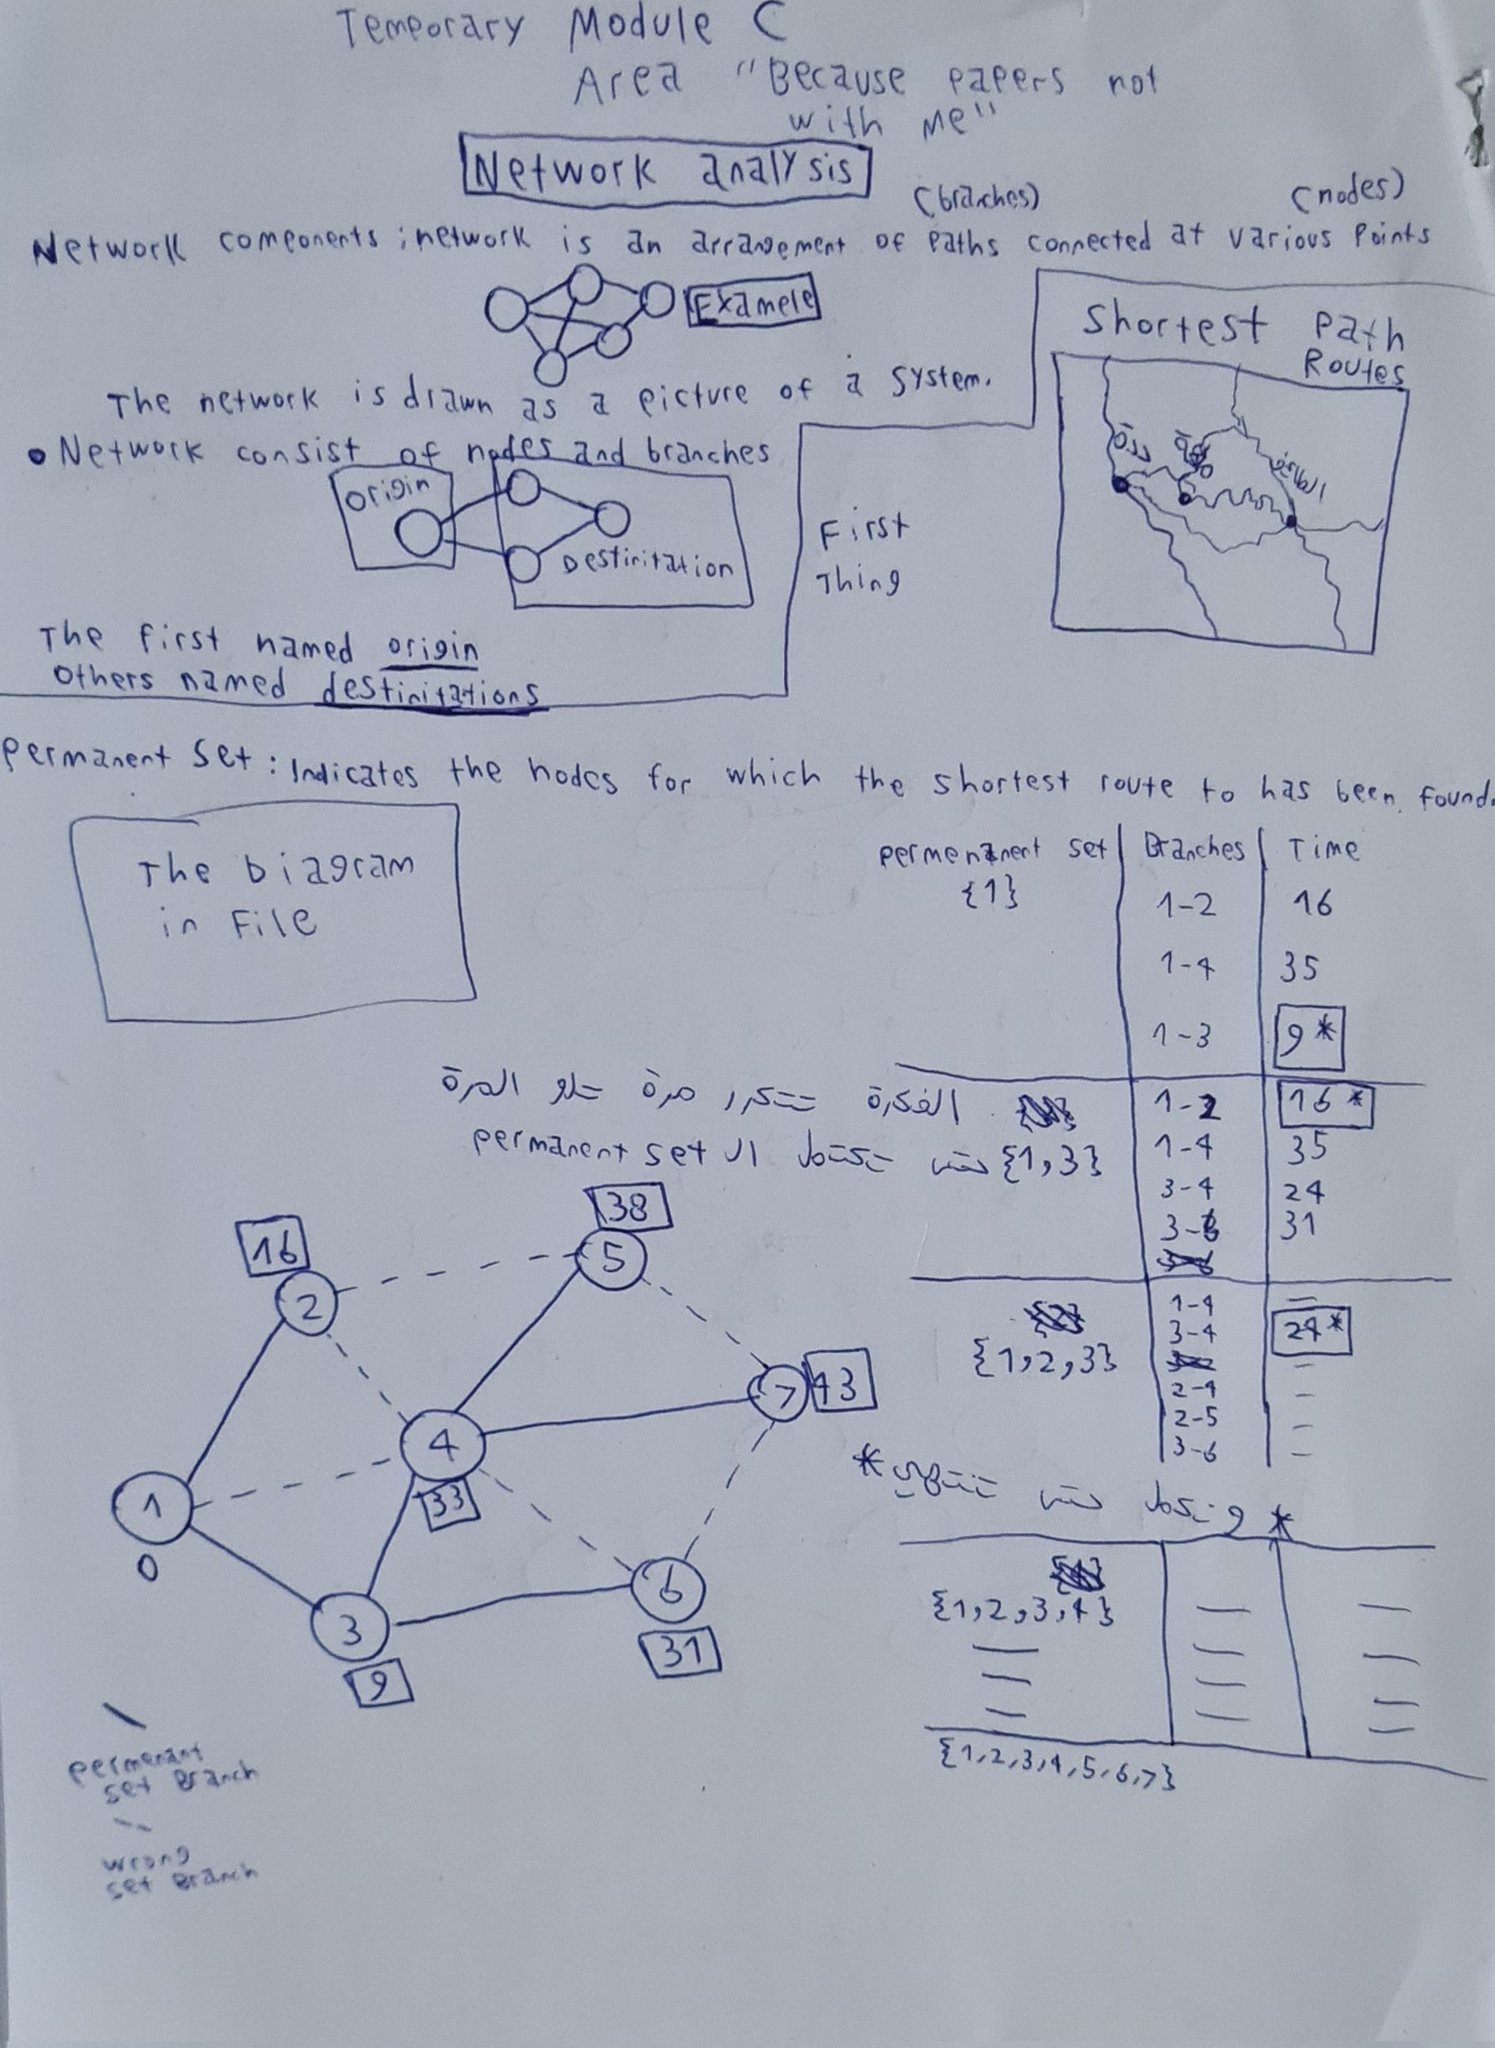 Temporary Module C
Area "Because papers not
with me"
Network analysis
(branches) (nodes)
Network components : network is an arrangement of paths connected at various Points
Example
The network is drawn as a picture of a system.
• Network consist of nodes and branches
origin
Destinitation
The first named origin
others named destinitations
First
Thing
Shortest Path
Routes
Permanent Set : Indicates the nodes for which the shortest route to has been found.
The Diagram
in File
permenanent set Branches Time
{1} 1-2 16
1-4 35
1-3 9*
الفكرة تتكرر مرة تلو المرة
1-2 16*
حتى تكتمل ال permanent set
{1,3} 1-4 35
3-4 24
3-6 31
{1,2,3} 1-4 —
3-4 24*
2-4 —
2-5 —
3-6 —
* و نكمل حتى ننتهي *
{1,2,3,4}
{1,2,3,4,5,6,7}
16
2
38
5
7 43
4
33
1
0
3
9
6
31
permenant
set Branch
wrong
set Branch